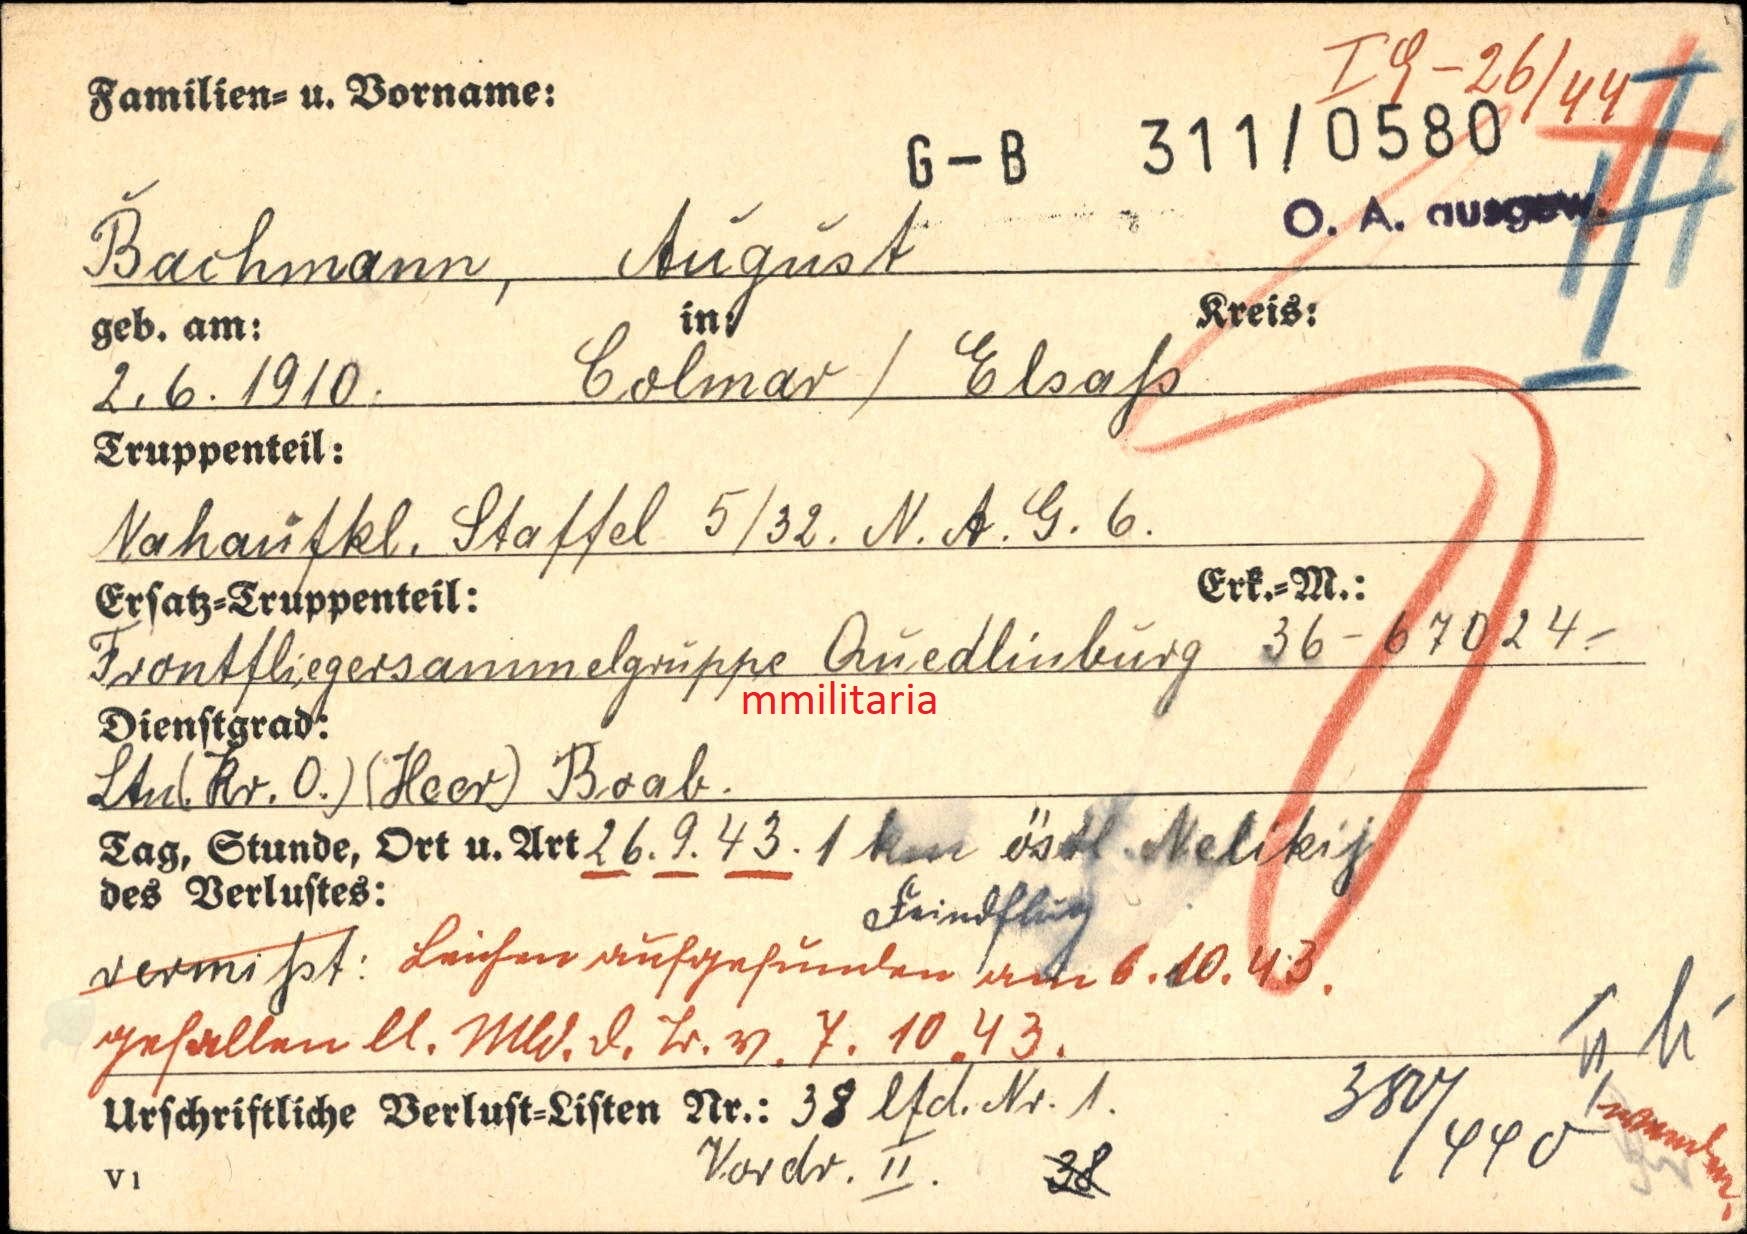 I G-26/44
Familien- u. Vorname:
G-B 311/0580
O. A. ausgew.
Bachmann, August
geb. am: in: Kreis:
2.6.1910. Colmar / Elsaß
Truppenteil:
Nahaufkl. Staffel 5/32. N. A. G. 6.
Ersatz-Truppenteil: Erk.-M.:
Frontfliegersammelgruppe Quedlinburg 36-67024-
mmilitaria
Dienstgrad:
Ltn(Kr. O.) (Heer) Boab.
Tag, Stunde, Ort u. Art 26.9.43. 1 km östl. Melikij
des Verlustes:
Feindflug
vermißt: Leichen aufgefunden am 6.10.43.
gefallen lt. Mld. d. Tr. v. 7.10.43.
Urschriftliche Verlust-Listen Nr.: 38 lfd. Nr. 1.
Vordr. II. 38
V 1
wenden.